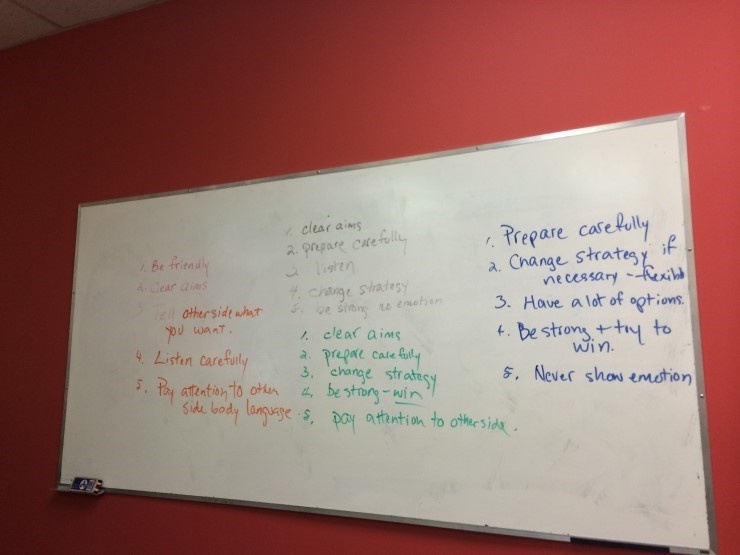 1. Be friendly
2. Clear aims
3. Tell other side what
you want.
4. Listen carefully
5. Pay attention to other
side body language
1. clear aims
2. prepare carefully
3. listen
4. change strategy
5. be strong no emotion
1. clear aims
2. prepare carefully
3. change strategy
4. be strong - win
5. pay attention to other side.
1. Prepare carefully
2. Change strategy if
necessary - flexible
3. Have a lot of options.
4. Be strong + try to
win.
5. Never show emotion